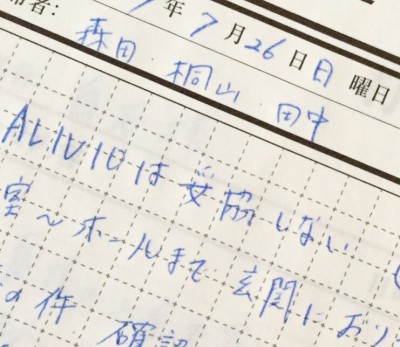 席者: 年7月26日日曜日
森田 桐山 田中
ALIVEは妥協しない
室〜ホールまで 玄関におり
の件 確認